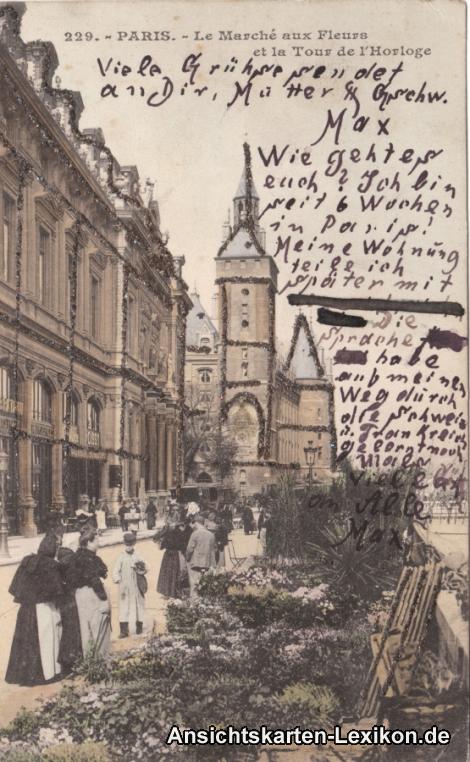 229. - PARIS. - Le Marché aux Fleurs
et la Tour de l'Horloge
Viele Grühse sendet
an Dir, Mutter & Gschw.
Max
Wie geht es
euch? Ich bin
seit 6 Wochen
in Paris!
Meine Wohnung
teile ich
später mit
Die
Sprache
habe
auf meinen
Weg durch
die Schweiz
u. Frankreich
gelernt
Viele
an Alle
Max
Ansichtskarten-Lexikon.de